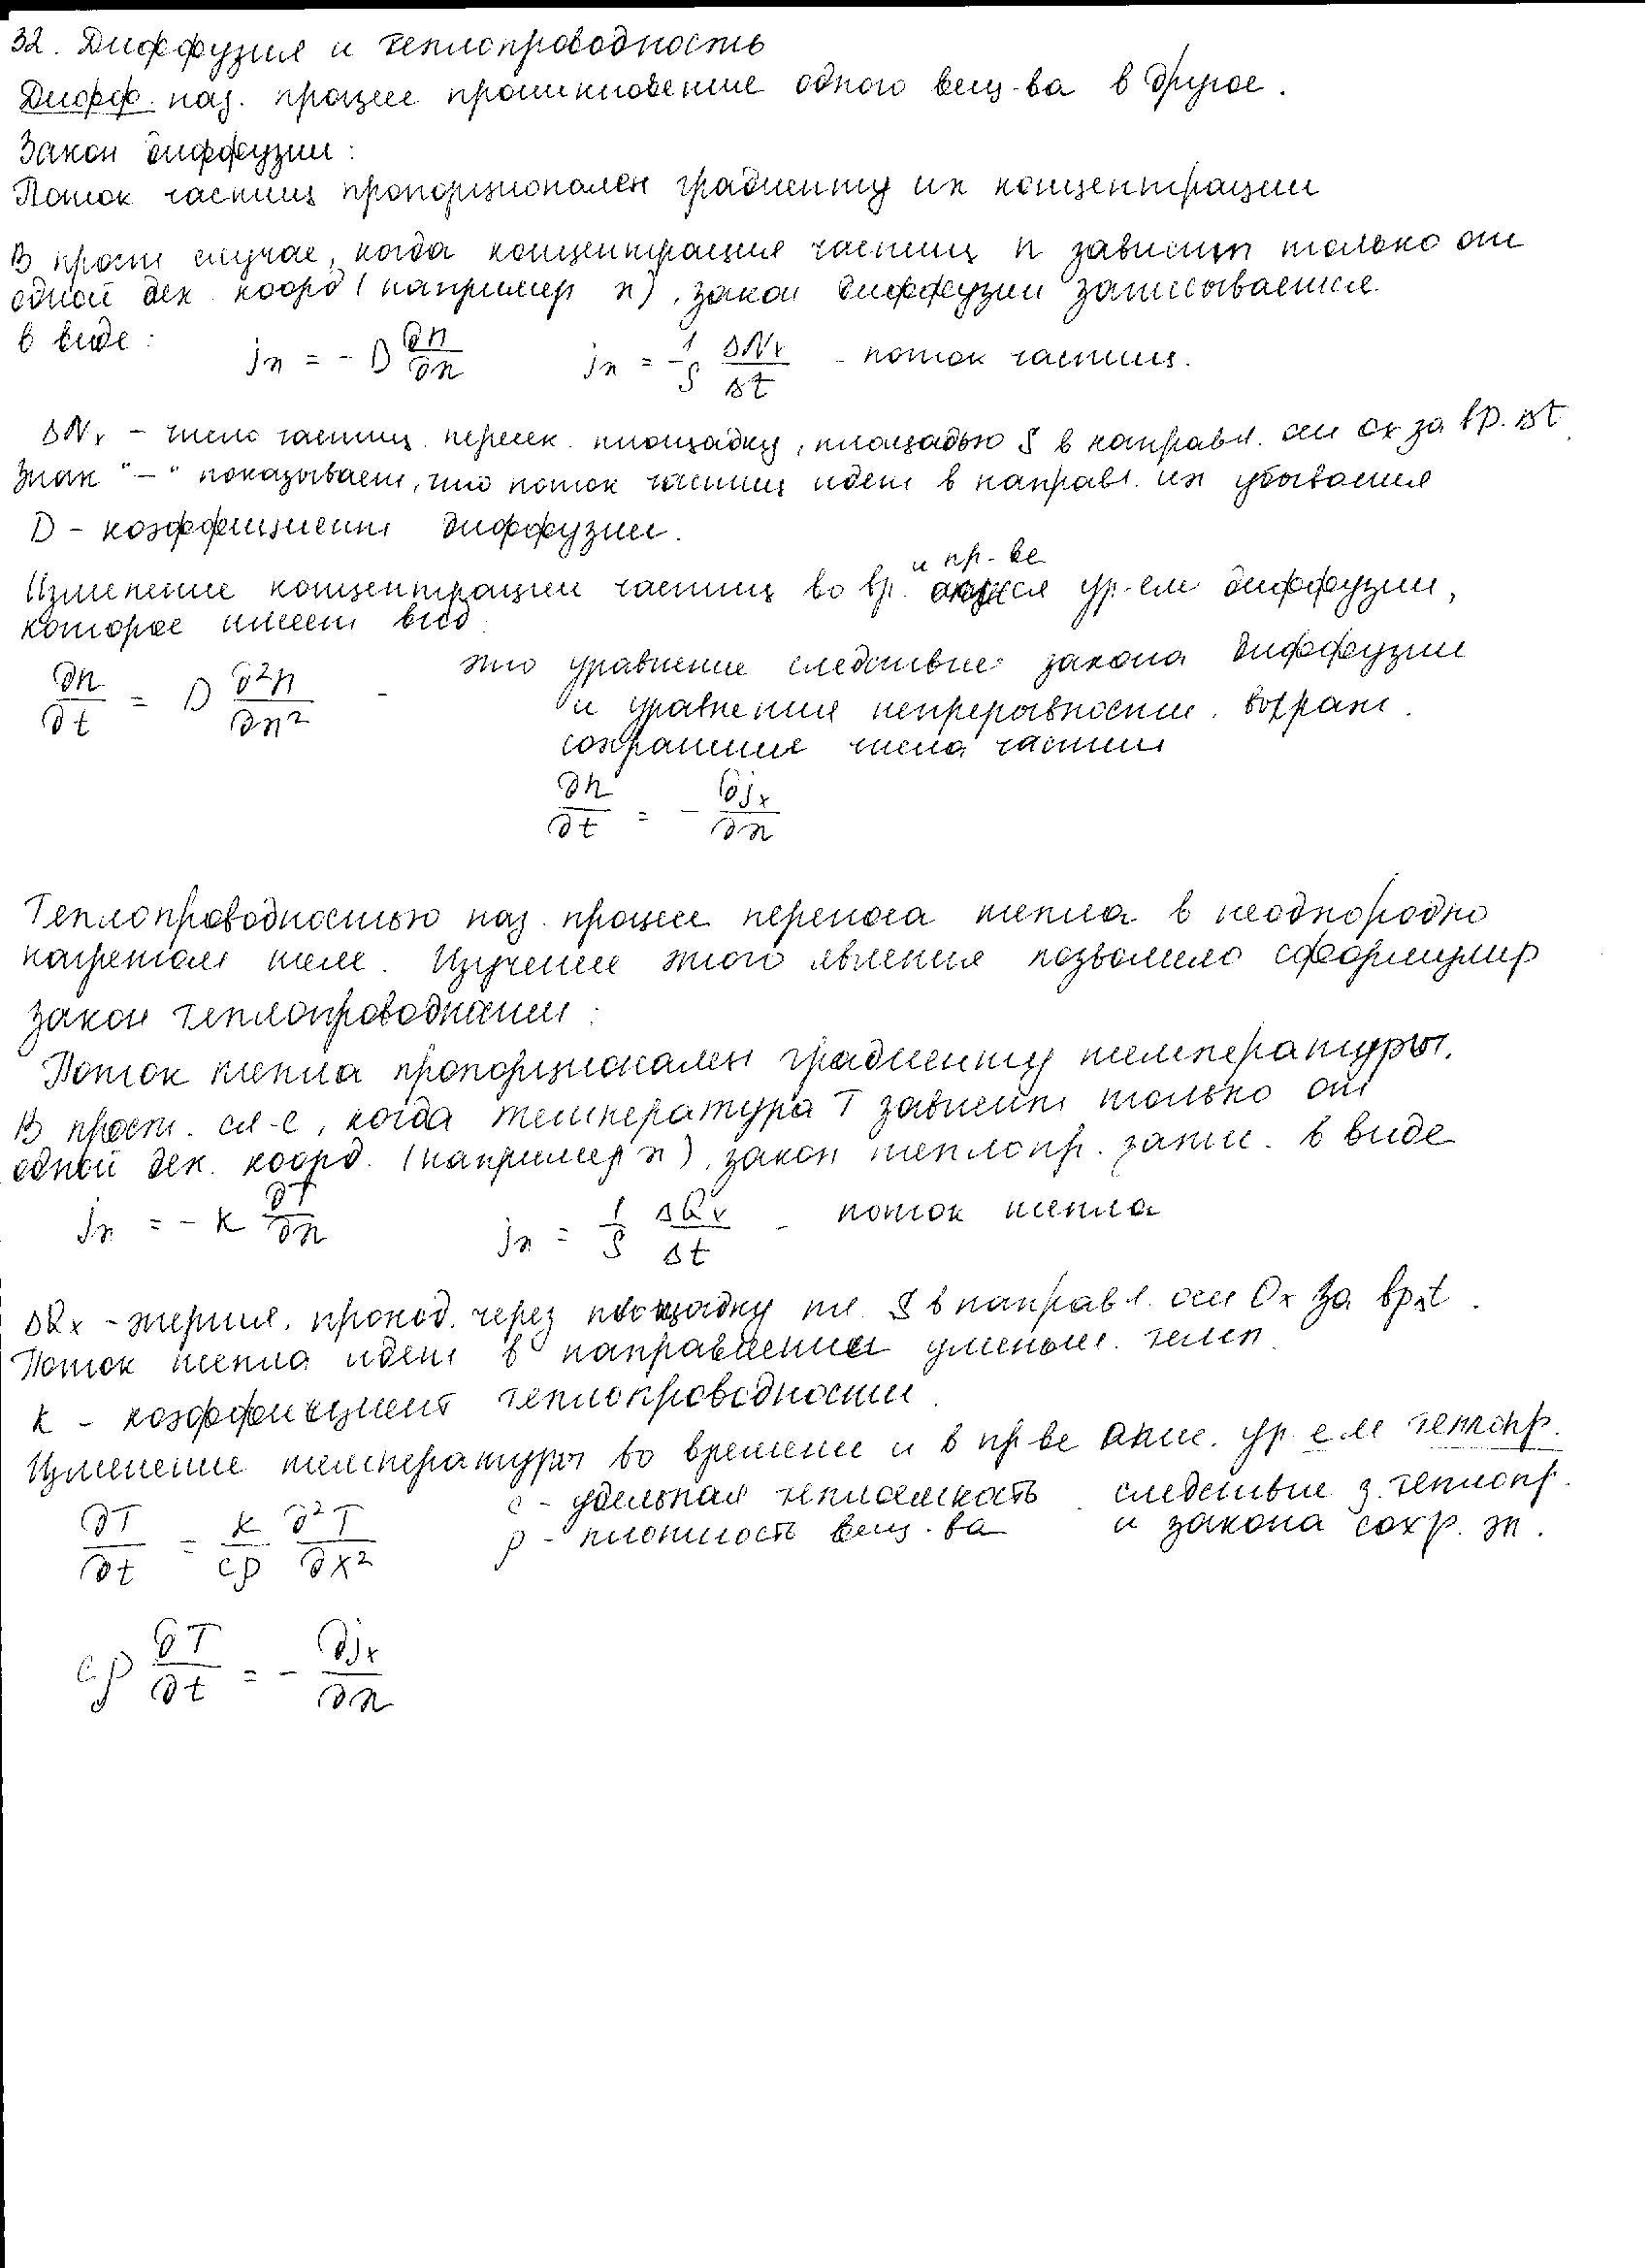 32. Диффузия и теплопроводность
Дифф. наз. процесс проникновение одного вещ-ва в другое.
Закон диффузии:
Поток частиц пропорционален градиенту их концентрации
В прост случае, когда концентрация частиц n зависит только от
одной дек. коорд (например x), закон диффузии записывается
в виде:
jx = - D ∂n/∂x   jx = 1/S ΔNx/Δt - поток частиц.
ΔNx - число частиц. перысек. площадку, площадью S в направл. оси Ox за вр. Δt
Знак "-" показывает, что поток частиц идет в направл. их убывания
D - коэффициент диффузии.
и пр-ве
Изменение концентрации частиц во вр. ся ур-ем диффузии,
которое имеет вид
∂n/∂t = D ∂²n/∂x² - это уравнение следствие закона диффузии
и уравнения непрерывности. выраж.
сохранение числа частиц
∂n/∂t = - ∂jx/∂x
Теплопроводностью наз. процесс переноса тепла в неоднородно
нагретом теле. Изучение этого явления позволило сформулир
закон теплопроводности:
Поток тепла пропорционален градиенту температуры.
В прост. сл-е, когда температура T зависит только от
одной дек. коорд. (например x), закон теплопр. запис. в виде
jx = - k ∂T/∂x   jx = 1/S ΔQx/Δt - поток тепла
ΔQx - энергия. проход. через площадку пл. S в направл. оси Ox за врΔt.
Поток тепла идет в направлении уменьш. темп.
k - коэффициент теплопроводности.
Изменение температуры во времени и в пр ве опис. ур ем теплопр.
∂T/∂t = k/cρ ∂²T/∂x²   c - удельная теплоемкость. следствие з. теплопр.
ρ - плотность вещ-ва   и закона сохр. эн.
cρ ∂T/∂t = - ∂jx/∂x